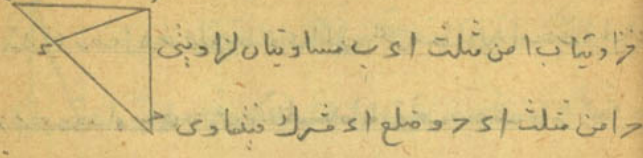 فزاويتا ب ا من مثلث ا ء ب مساويتان لزاويتى
ح ا من مثلث ا ء ح و ضلع ا ء مشرك فيتساوى
ء
ح